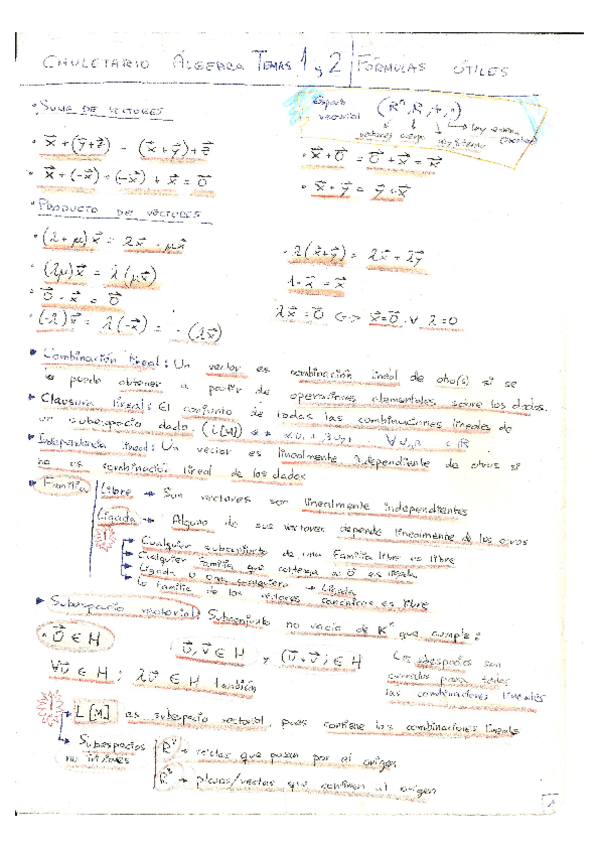 CHULETARIO ÁLGEBRA TEMAS 1 y 2 | FÓRMULAS ÚTILES
• SUMA DE VECTORES
Espacio vectorial (Rⁿ, R, +, ·)
vectores cuerpo ley interna
ley externa
• x⃗ + (y⃗ + z⃗) = (x⃗ + y⃗) + z⃗
• x⃗ + 0⃗ = 0⃗ + x⃗ = x⃗
• x⃗ + (-x⃗) = (-x⃗) + x⃗ = 0⃗
• x⃗ + y⃗ = y⃗ + x⃗
• PRODUCTO DE VECTORES
• (λ + μ) x⃗ = λx⃗ + μx⃗
• λ(x⃗ + y⃗) = λx⃗ + λy⃗
• (λμ) x⃗ = λ(μx⃗)
1 · x⃗ = x⃗
• 0⃗ · x⃗ = 0⃗
• (-λ) x⃗ = λ(-x⃗) = -(λx⃗)
λx⃗ = 0⃗ <-> x⃗ = 0⃗ ∨ λ = 0
▸ Combinación lineal: Un vector es combinación lineal de otro(s) si se
lo puede obtener a partir de operaciones elementales sobre los dados.
▸ Clausura lineal: El conjunto de todas las combinaciones lineales de
un subespacio dado. (L[M])
▸ Independencia lineal: Un vector es linealmente independiente de otros si
no es combinación lineal de los dados
▸ Familia
Libre → Sus vectores son linealmente independientes
Ligada → Alguno de sus vectores depende linealmente de los otros
! → Cualquier subconjunto de una Familia libre es libre
→ Cualquier familia que contenga a 0⃗ es ligada
→ Ligada U → Ligada
la familia de los vectores canónicos es libre
▸ Subespacio vectorial: Subconjunto no vacío de Rⁿ que cumple:
• 0⃗ ∈ H
u⃗, v⃗ ∈ H y (u⃗ + v⃗) ∈ H
Los subespacios son
cerrados para todas
las combinaciones lineales
∀u⃗ ∈ H; λu⃗ ∈ H también
! → L[M] es subespacio vectorial, pues contiene las combinaciones lineales
→ Subespacios
R² → rectas que pasan por el origen
R³ → planos/rectas que contienen al origen
1